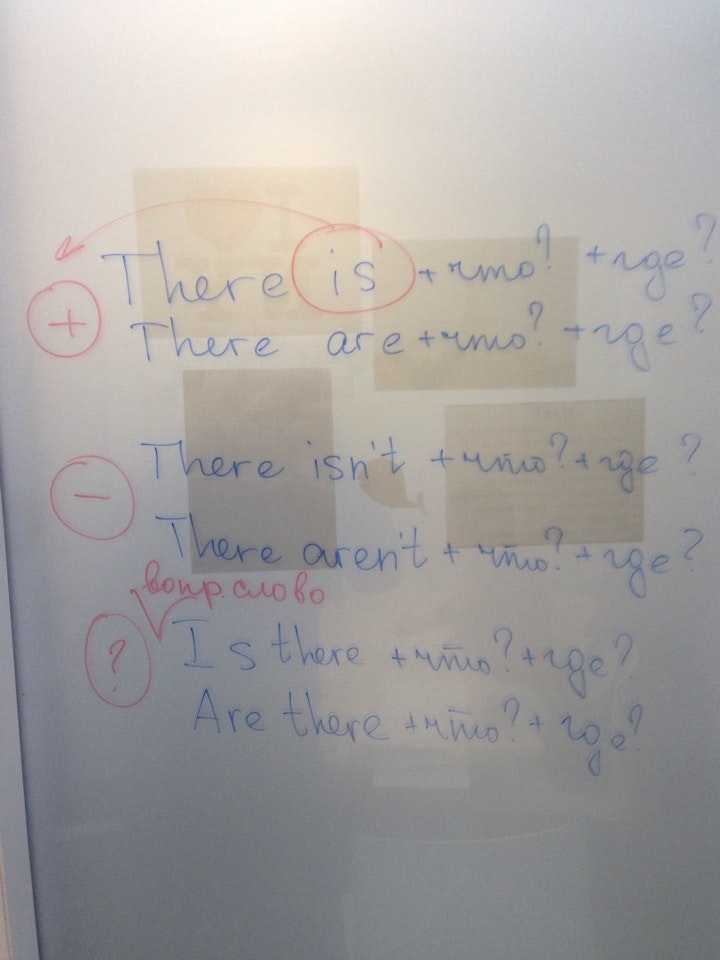 There is + что? + где?
+
There are + что? + где?
There isn't + что? + где?
−
There aren't + что? + где?
вопр. слово
? Is there + что? + где?
Are there + что? + где?